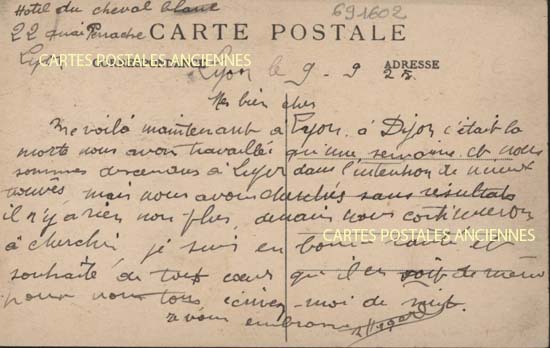 Hotel du cheval blanc
691602
22 quai Perrache
CARTE POSTALE
Lyon
CARTES POSTALES ANCIENNES
CORRESPONDANCE
ADRESSE
Lyon le 9-9 25.
Mes bien chers
Me voilà maintenant à Lyon. à Dijon c'était la
morte nous avon travaillés qu'une semaine et nous
sommes descendus à Lyon dans l'intention de mieux
trouvés mais nous avons cherchés sans résultats
il n'y a rien non plus demain nous continueron
à cherchér je suis en bonne santé et
CARTES POSTALES ANCIENNES
souhaite de tout cœur qu'il en soit de même
pour vous tous écrivez-moi de suite.
à vous embrasse